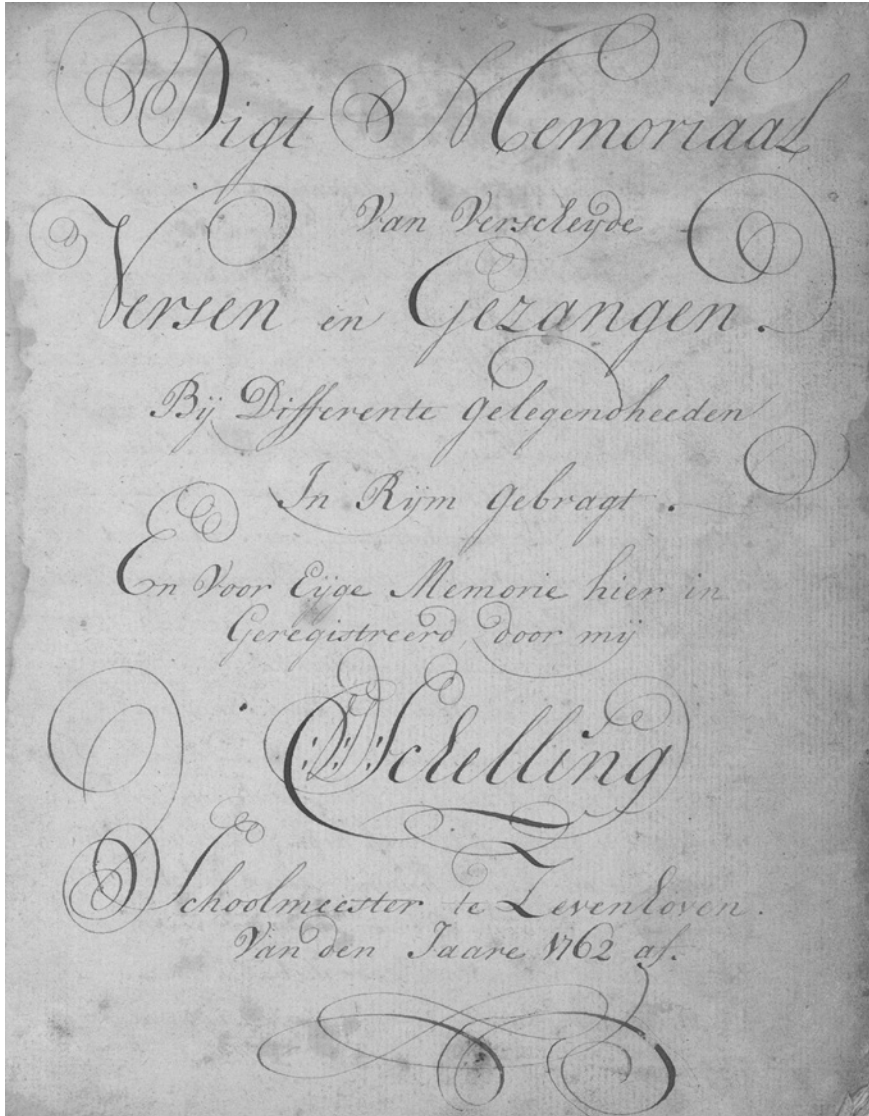 Digt Memoriaal
Van Verscheyde
Versen en Gezangen.
Bij Differente Gelegendheeden
In Rijm Gebragt.
En Voor Eijge Memorie hier in
Geregistreerd, door mij
Schelling
Schoolmeester te Zevenhoven.
Van den Jaare 1762 af.